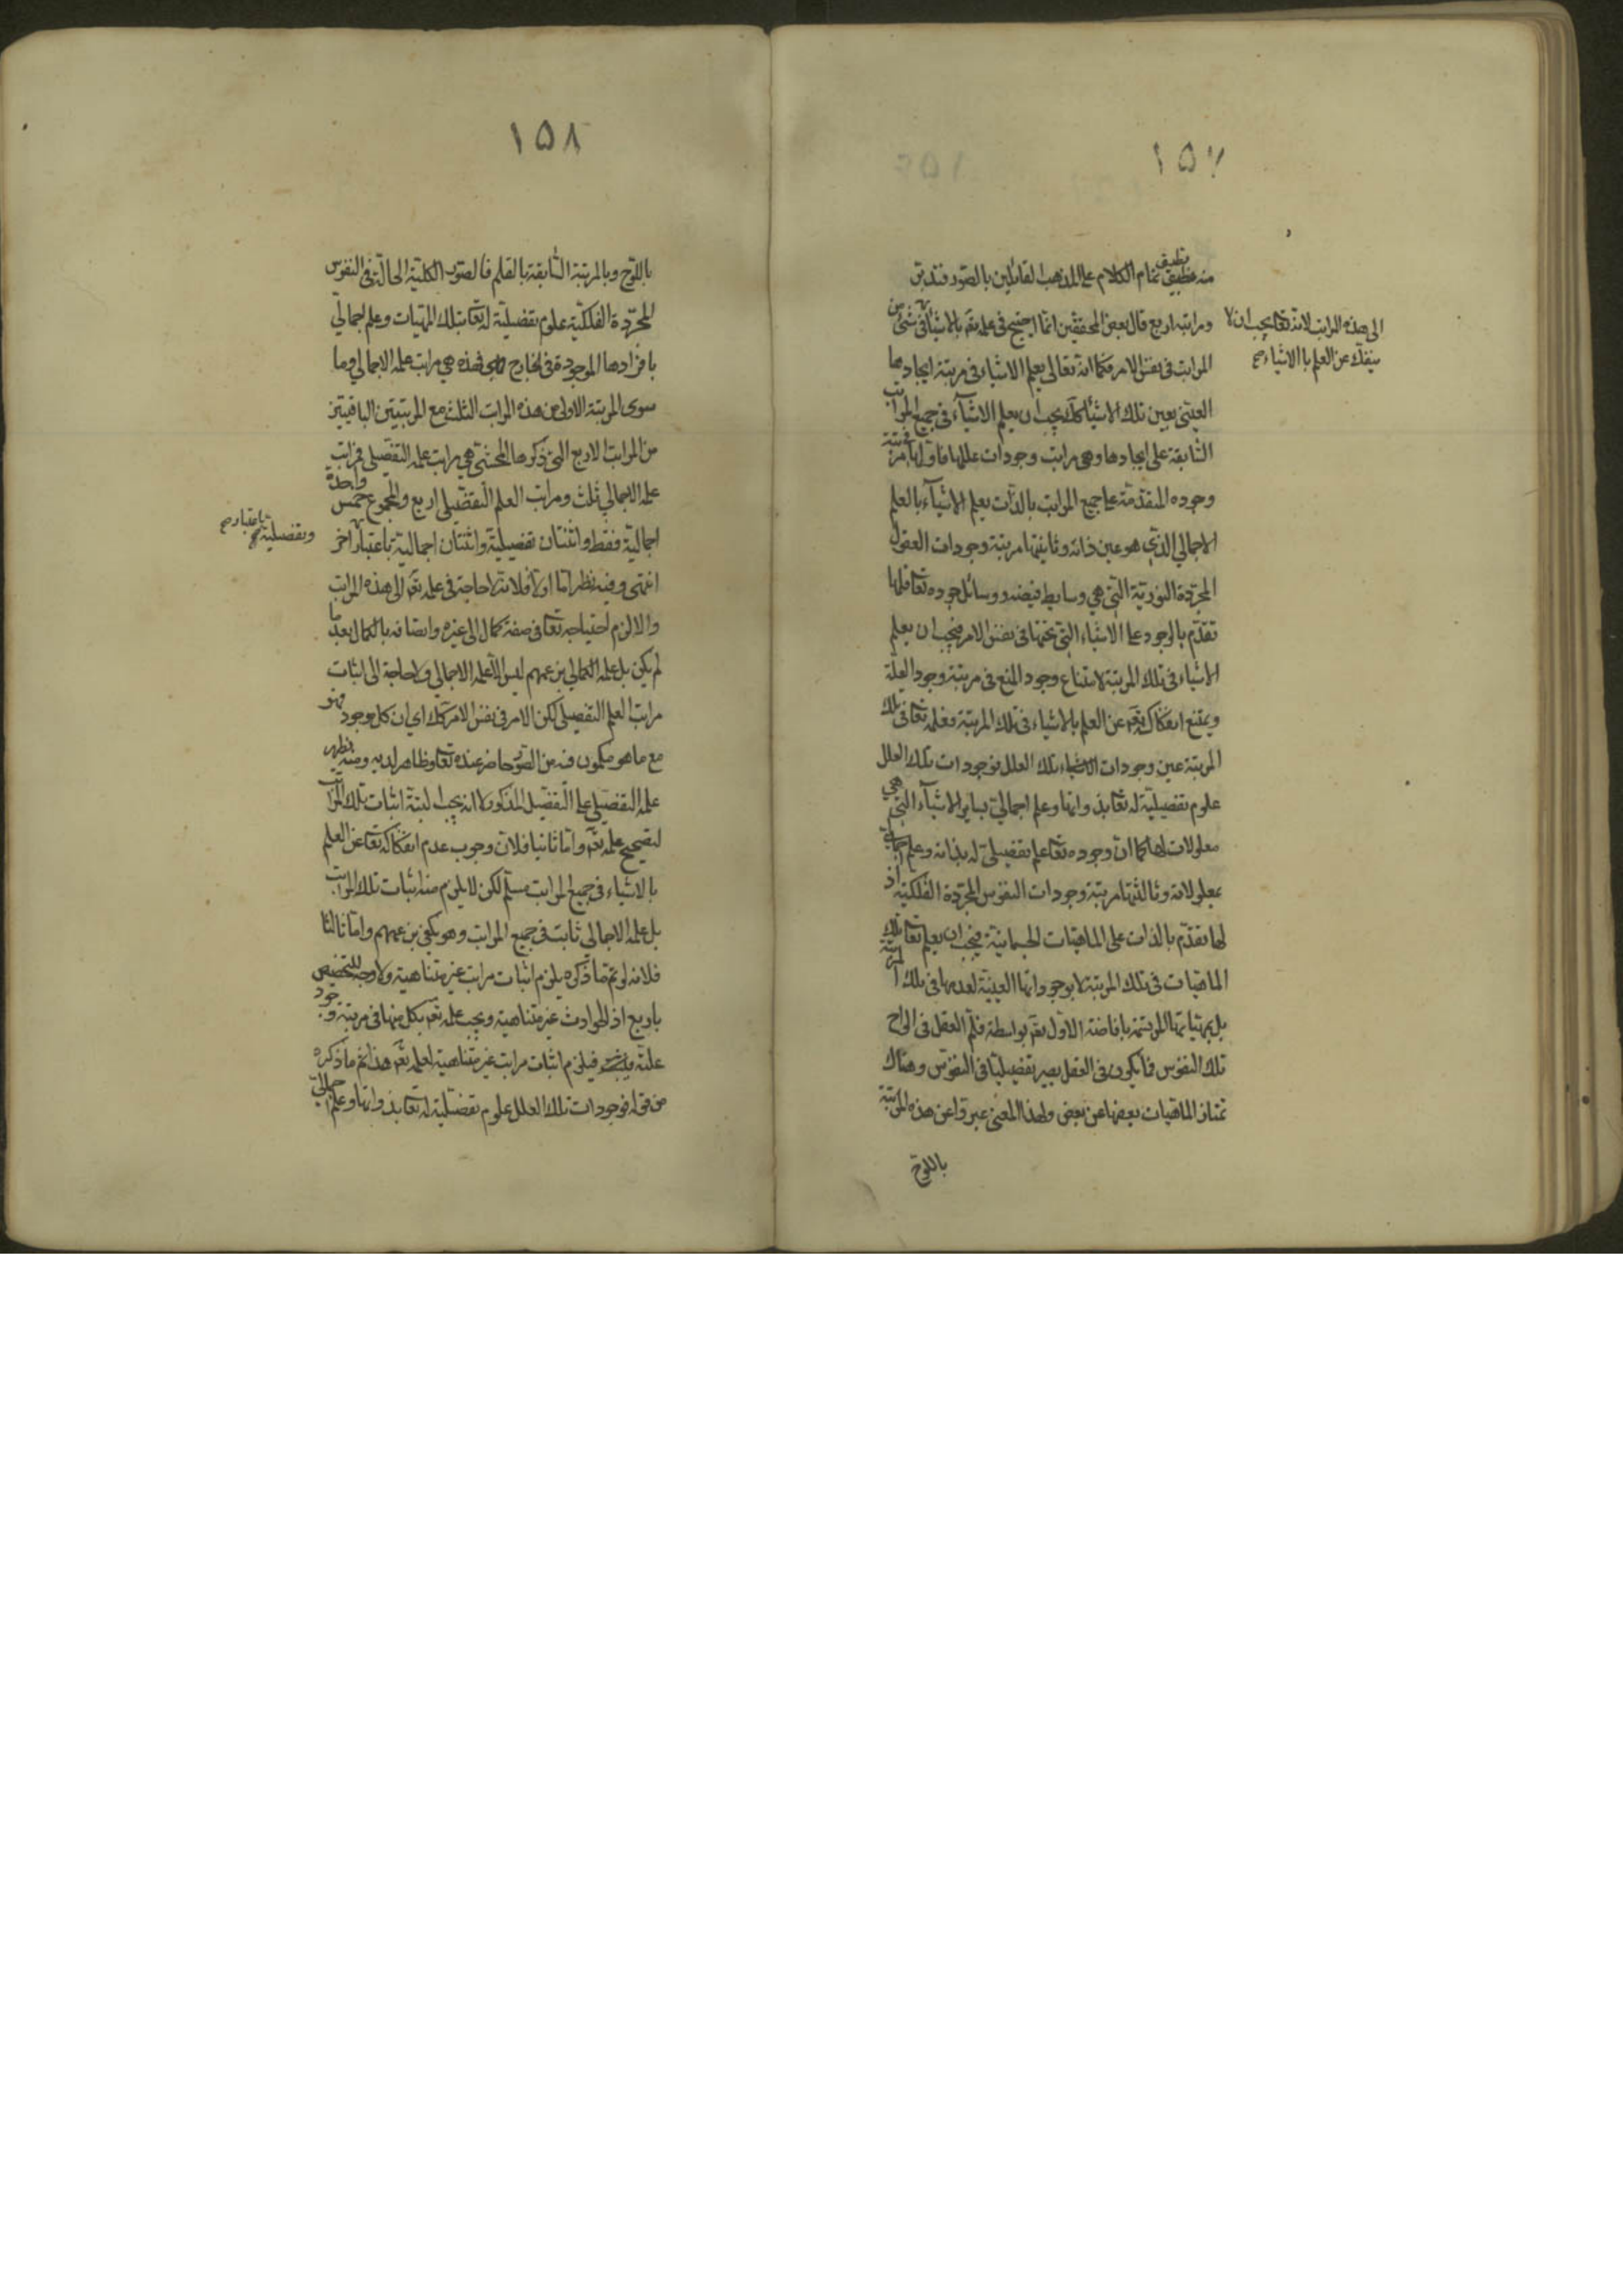 ١٥٧
منه تطبيق تمام الكلام على المذهب القائلين بالصور فتدبر
الى هذه المراتب لانه تعالى يجب ان لا
ينفك عن العلم بالاشياء صح
ومراتبه اربع قال بعض المحققين انما احتيج فى علمه تعالى بالاشياء فى شئ من
المراتب فى نفس الامر فكما انه تعالى يعلم الاشياء فى مرتبة ايجادها
العينى بعين تلك الاشياء كذلك يجب ان يعلم الاشياء فى جميع المراتب
السابقة على ايجادها وهى مراتب وجودات عللها فاولها مرتبة
وجوده المتقدمة على جميع المراتب بالذات يعلم الاشياء بالعلم
الاجمالي الذي هو عين ذاته وثانيتها مرتبة وجودات العقول
المجردة النورية التي هي وسايط فيضه ووسائل جوده تعالى فلها
تقدم بالوجود على الاشياء التي تحتها فى نفس الامر فيجب ان يعلم
الاشياء فى تلك المرتبة لامتناع وجود المنع فى مرتبة وجود العلة
ويمتنع انفكاكه تعالى عن العلم بالاشياء فى تلك المرتبة فعلمه تعالى فى تلك
المرتبة عين وجودات تلك العلل فوجودات تلك العلل
علوم تفصيلية له تعالى بذواتها وعلم اجمالي بساير الاشياء التي هي
معلولات لها كما ان وجوده تعالى علم تفصيلي له بذاته وعلم اجمالي
بمعلولاته وثالثتها مرتبة وجودات النفوس المجردة الفلكية اذ
لها تقدم بالذات على الماهيات الجسمانية فيجب ان يعلم تعالى تلك
الماهيات فى تلك المرتبة لا بوجوداتها العينية لعدمها فى تلك المرتبة
بل بمهياتها المرتسمة بافاضة الاول تعالى بواسطة قلم العقل فى الواح
تلك النفوس فما يكون فى العقل يصير تفصيليا فى النفوس وهناك
تمتاز الماهيات بعضها عن بعض ولهذا المعنى عبروا عن هذه المرتبة
باللوح
١٥٨
باللوح وبالمرتبة السابقة بالقلم فالصور الكلية الحالة فى النفوس
المجردة الفلكية علوم تفصيلية له تعالى بتلك المهيات وعلم اجمالي
بافرادها الموجودة فى الخارج فهذه هي مراتب علمه الاجمالي وما
سوى المرتبة الاولى من هذه المراتب الثلث مع المرتبتين الباقيتين
من المراتب الاربع التي ذكرها المحشي هي مراتب علمه التفصيلي فمراتب
علمه الاجمالي ثلث ومراتب العلم التفصيلي اربع والمجموع خمس واحدة
اجمالية فقط واثنتان تفصيلية واثنتان اجمالية باعتبار آخر
وتفصيلية باعتبار صح
انتهى وفيه نظر اما اولا فلانه لا حاجة فى علمه تعالى الى هذه المراتب
والا لزم احتياجه تعالى فى صفة كمال الى غيره واتصافه بالكمال بعد ما
لم يكن بل علمه الكمالي بزعمهم ليس الا علمه الاجمالي ولا حاجة الى اثبات
مراتب العلم التفصيلي لكن الامر فى نفس الامر كذلك اي ان كل موجود فهو
مع ما هو مكون فيه من الصور حاضر عنده تعالى وظاهر لديه ومنه يظهر
علمه التفصيلي على التفصيل المذكور لا انه يجب البتة اثبات تلك المراتب
لتصحيح علمه تعالى واما ثانيا فلان وجوب عدم انفكاكه تعالى عن العلم
بالاشياء فى جميع المراتب مسلم لكن لا يلزم منه اثبات تلك المراتب
بل علمه الاجمالي ثابت فى جميع المراتب وهو يكفي بزعمهم واما ثالثا
فلانه لو تم ما ذكره يلزم اثبات مراتب غير متناهية ولا وجه للتخصيص
باربع اذ الحوادث غير متناهية ويجب علمه تعالى بكل منها فى مرتبة وجود
علته فيلزم اثبات مراتب غير متناهية لعلمه تعالى هذا ثم ما ذكره
من قوله فوجودات تلك العلل علوم تفصيلية له تعالى بذواتها وعلم اجمالي